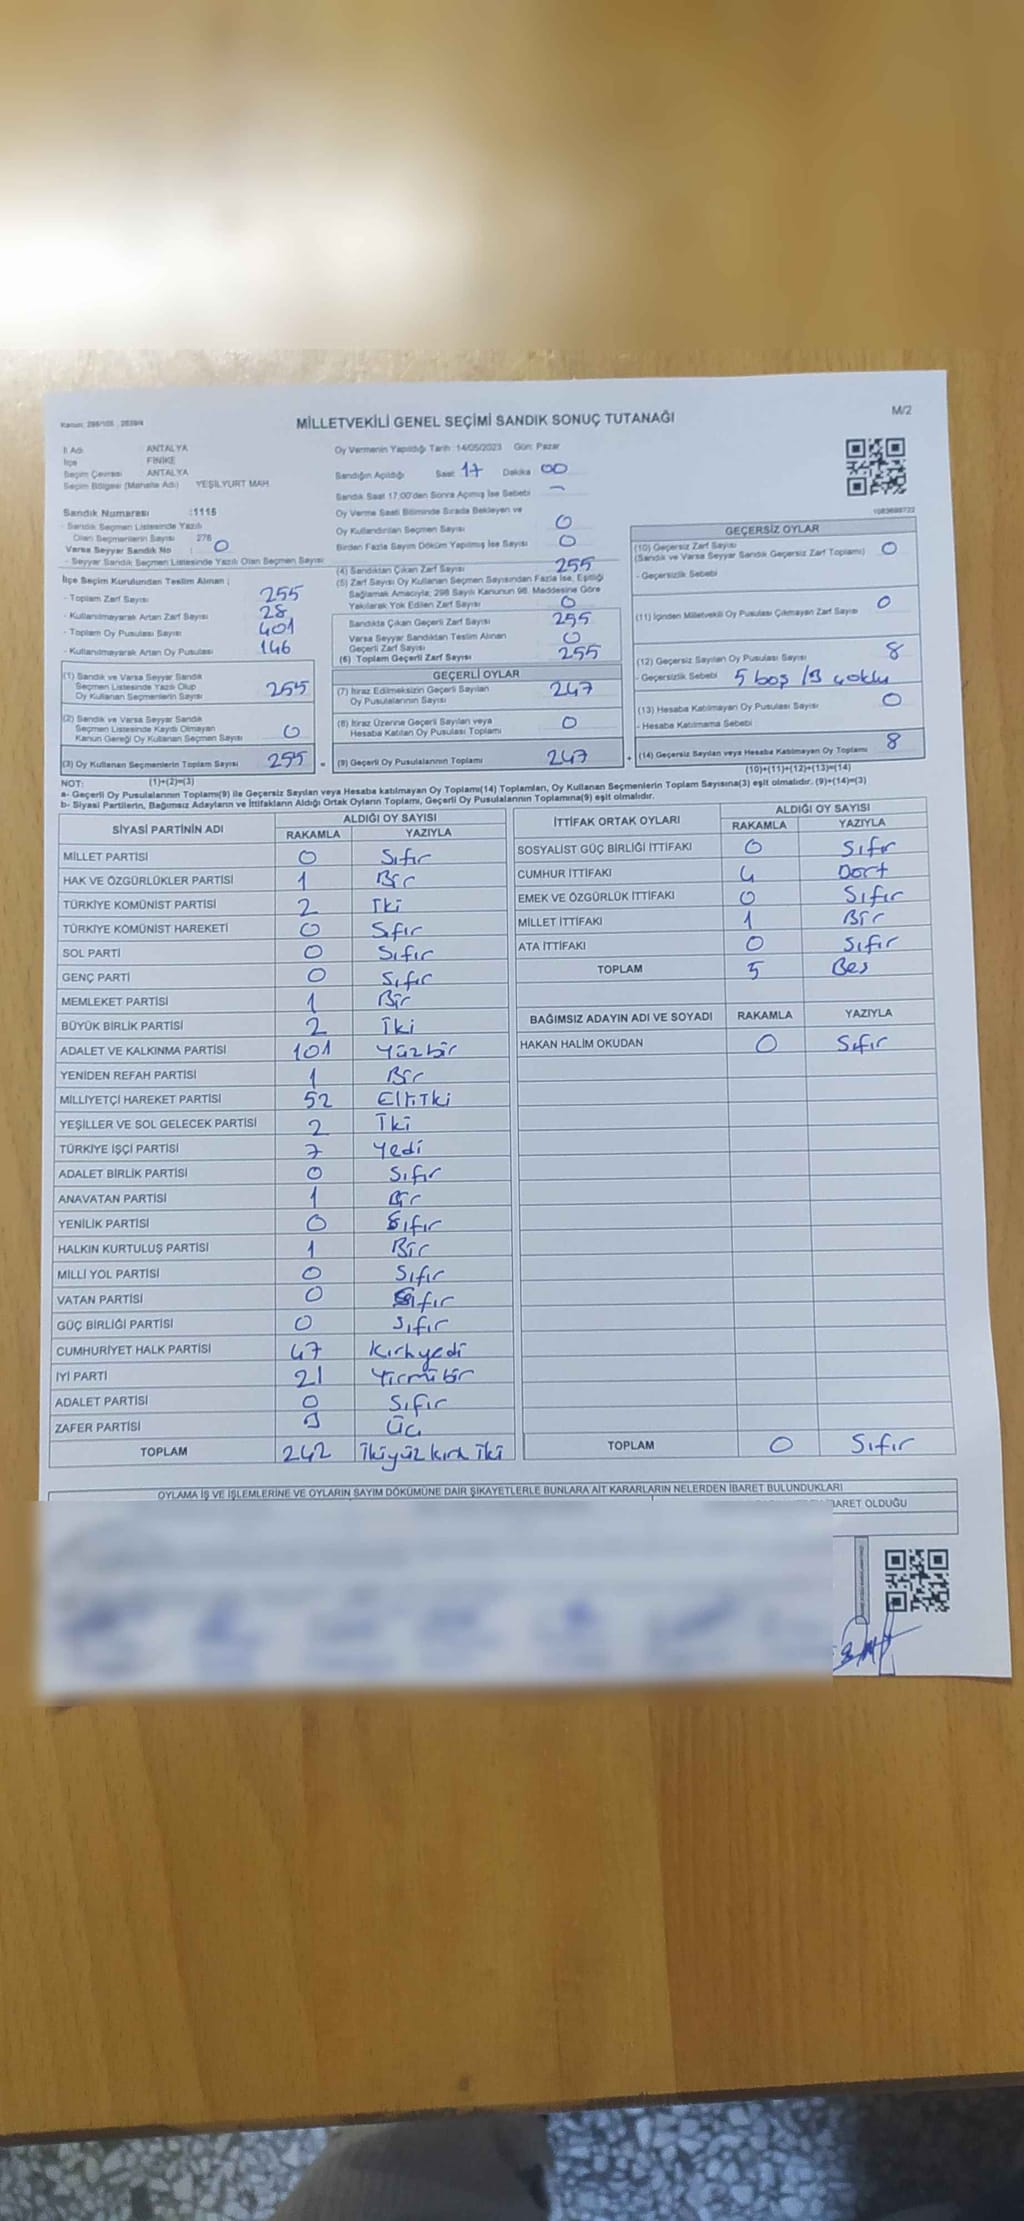 Kanun: 298/105 , 2839/4
MİLLETVEKİLİ GENEL SEÇİMİ SANDIK SONUÇ TUTANAĞI
M/2
İl Adı ANTALYA
İlçe FİNİKE
Seçim Çevresi ANTALYA
Seçim Bölgesi (Mahalle Adı) YEŞİLYURT MAH.
Sandık Numarası :1115
- Sandık Seçmen Listesinde Yazılı
Olan Seçmenlerin Sayısı 276
Varsa Seyyar Sandık No : 0
- Seyyar Sandık Seçmen Listesinde Yazılı Olan Seçmen Sayısı
İlçe Seçim Kurulundan Teslim Alınan ;
- Toplam Zarf Sayısı 255
- Kullanılmayarak Artan Zarf Sayısı 28
- Toplam Oy Pusulası Sayısı 401
- Kullanılmayarak Artan Oy Pusulası 146
(1) Sandık ve Varsa Seyyar Sandık
Seçmen Listesinde Yazılı Olup
Oy Kullanan Seçmenlerin Sayısı 255
(2) Sandık ve Varsa Seyyar Sandık
Seçmen Listesinde Kayıtlı Olmayan
Kanun Gereği Oy Kullanan Seçmen Sayısı 0
(3) Oy Kullanan Seçmenlerin Toplam Sayısı 255 =
Oy Vermenin Yapıldığı Tarih :14/05/2023 Gün: Pazar
Sandığın Açıldığı Saat 17 Dakika 00
Sandık Saat 17:00'den Sonra Açılmış İse Sebebi -
Oy Verme Saati Bitiminde Sırada Bekleyen ve
Oy Kullandırılan Seçmen Sayısı 0
Birden Fazla Sayım Döküm Yapılmış İse Sayısı 0
(4) Sandıktan Çıkan Zarf Sayısı 255
(5) Zarf Sayısı Oy Kullanan Seçmen Sayısından Fazla İse, Eşitliği
Sağlamak Amacıyla; 298 Sayılı Kanunun 98. Maddesine Göre
Yakılarak Yok Edilen Zarf Sayısı 0
Sandıkta Çıkan Geçerli Zarf Sayısı 255
Varsa Seyyar Sandıktan Teslim Alınan
Geçerli Zarf Sayısı 0
(6) Toplam Geçerli Zarf Sayısı 255
GEÇERLİ OYLAR
(7) İtiraz Edilmeksizin Geçerli Sayılan
Oy Pusulalarının Sayısı 247
(8) İtiraz Üzerine Geçerli Sayılan veya
Hesaba Katılan Oy Pusulası Toplamı 0
(9) Geçerli Oy Pusulalarının Toplamı 247 +
1083698722
GEÇERSİZ OYLAR
(10) Geçersiz Zarf Sayısı
(Sandık ve Varsa Seyyar Sandık Geçersiz Zarf Toplamı) 0
- Geçersizlik Sebebi
(11) İçinden Milletvekili Oy Pusulası Çıkmayan Zarf Sayısı 0
(12) Geçersiz Sayılan Oy Pusulası Sayısı 8
- Geçersizlik Sebebi 5 boş /3 çoklu
(13) Hesaba Katılmayan Oy Pusulası Sayısı 0
- Hesaba Katılmama Sebebi
(14) Geçersiz Sayılan veya Hesaba Katılmayan Oy Toplamı 8
NOT: (1)+(2)=(3) (10)+(11)+(12)+(13)=(14)
a- Geçerli Oy Pusulalarının Toplamı(9) ile Geçersiz Sayılan veya Hesaba Katılmayan Oy Toplamı(14) Toplamları, Oy Kullanan Seçmenlerin Toplam Sayısına(3) eşit olmalıdır. (9)+(14)=(3)
b- Siyasi Partilerin, Bağımsız Adayların ve İttifakların Aldığı Ortak Oyların Toplamı, Geçerli Oy Pusulalarının Toplamına(9) eşit olmalıdır.
SİYASİ PARTİNİN ADI ALDIĞI OY SAYISI
RAKAMLA YAZIYLA
MİLLET PARTİSİ 0 Sıfır
HAK VE ÖZGÜRLÜKLER PARTİSİ 1 Bir
TÜRKİYE KOMÜNİST PARTİSİ 2 İki
TÜRKİYE KOMÜNİST HAREKETİ 0 Sıfır
SOL PARTİ 0 Sıfır
GENÇ PARTİ 0 Sıfır
MEMLEKET PARTİSİ 1 Bir
BÜYÜK BİRLİK PARTİSİ 2 İki
ADALET VE KALKINMA PARTİSİ 101 Yüzbir
YENİDEN REFAH PARTİSİ 1 Bir
MİLLİYETÇİ HAREKET PARTİSİ 52 Elliiki
YEŞİLLER VE SOL GELECEK PARTİSİ 2 İki
TÜRKİYE İŞÇİ PARTİSİ 7 Yedi
ADALET BİRLİK PARTİSİ 0 Sıfır
ANAVATAN PARTİSİ 1 Bir
YENİLİK PARTİSİ 0 Sıfır
HALKIN KURTULUŞ PARTİSİ 1 Bir
MİLLİ YOL PARTİSİ 0 Sıfır
VATAN PARTİSİ 0 Sıfır
GÜÇ BİRLİĞİ PARTİSİ 0 Sıfır
CUMHURİYET HALK PARTİSİ 47 Kırkyedi
İYİ PARTİ 21 Yirmibir
ADALET PARTİSİ 0 Sıfır
ZAFER PARTİSİ 3 Üç
TOPLAM 242 İkiyüz kırk iki
İTTİFAK ORTAK OYLARI ALDIĞI OY SAYISI
RAKAMLA YAZIYLA
SOSYALİST GÜÇ BİRLİĞİ İTTİFAKI 0 Sıfır
CUMHUR İTTİFAKI 4 Dört
EMEK VE ÖZGÜRLÜK İTTİFAKI 0 Sıfır
MİLLET İTTİFAKI 1 Bir
ATA İTTİFAKI 0 Sıfır
TOPLAM 5 Beş
BAĞIMSIZ ADAYIN ADI VE SOYADI RAKAMLA YAZIYLA
HAKAN HALİM OKUDAN 0 Sıfır
TOPLAM 0 Sıfır
OYLAMA İŞ VE İŞLEMLERİNE VE OYLARIN SAYIM DÖKÜMÜNE DAİR ŞİKAYETLERLE BUNLARA AİT KARARLARIN NELERDEN İBARET BULUNDUKLARI
BARET OLDUĞU